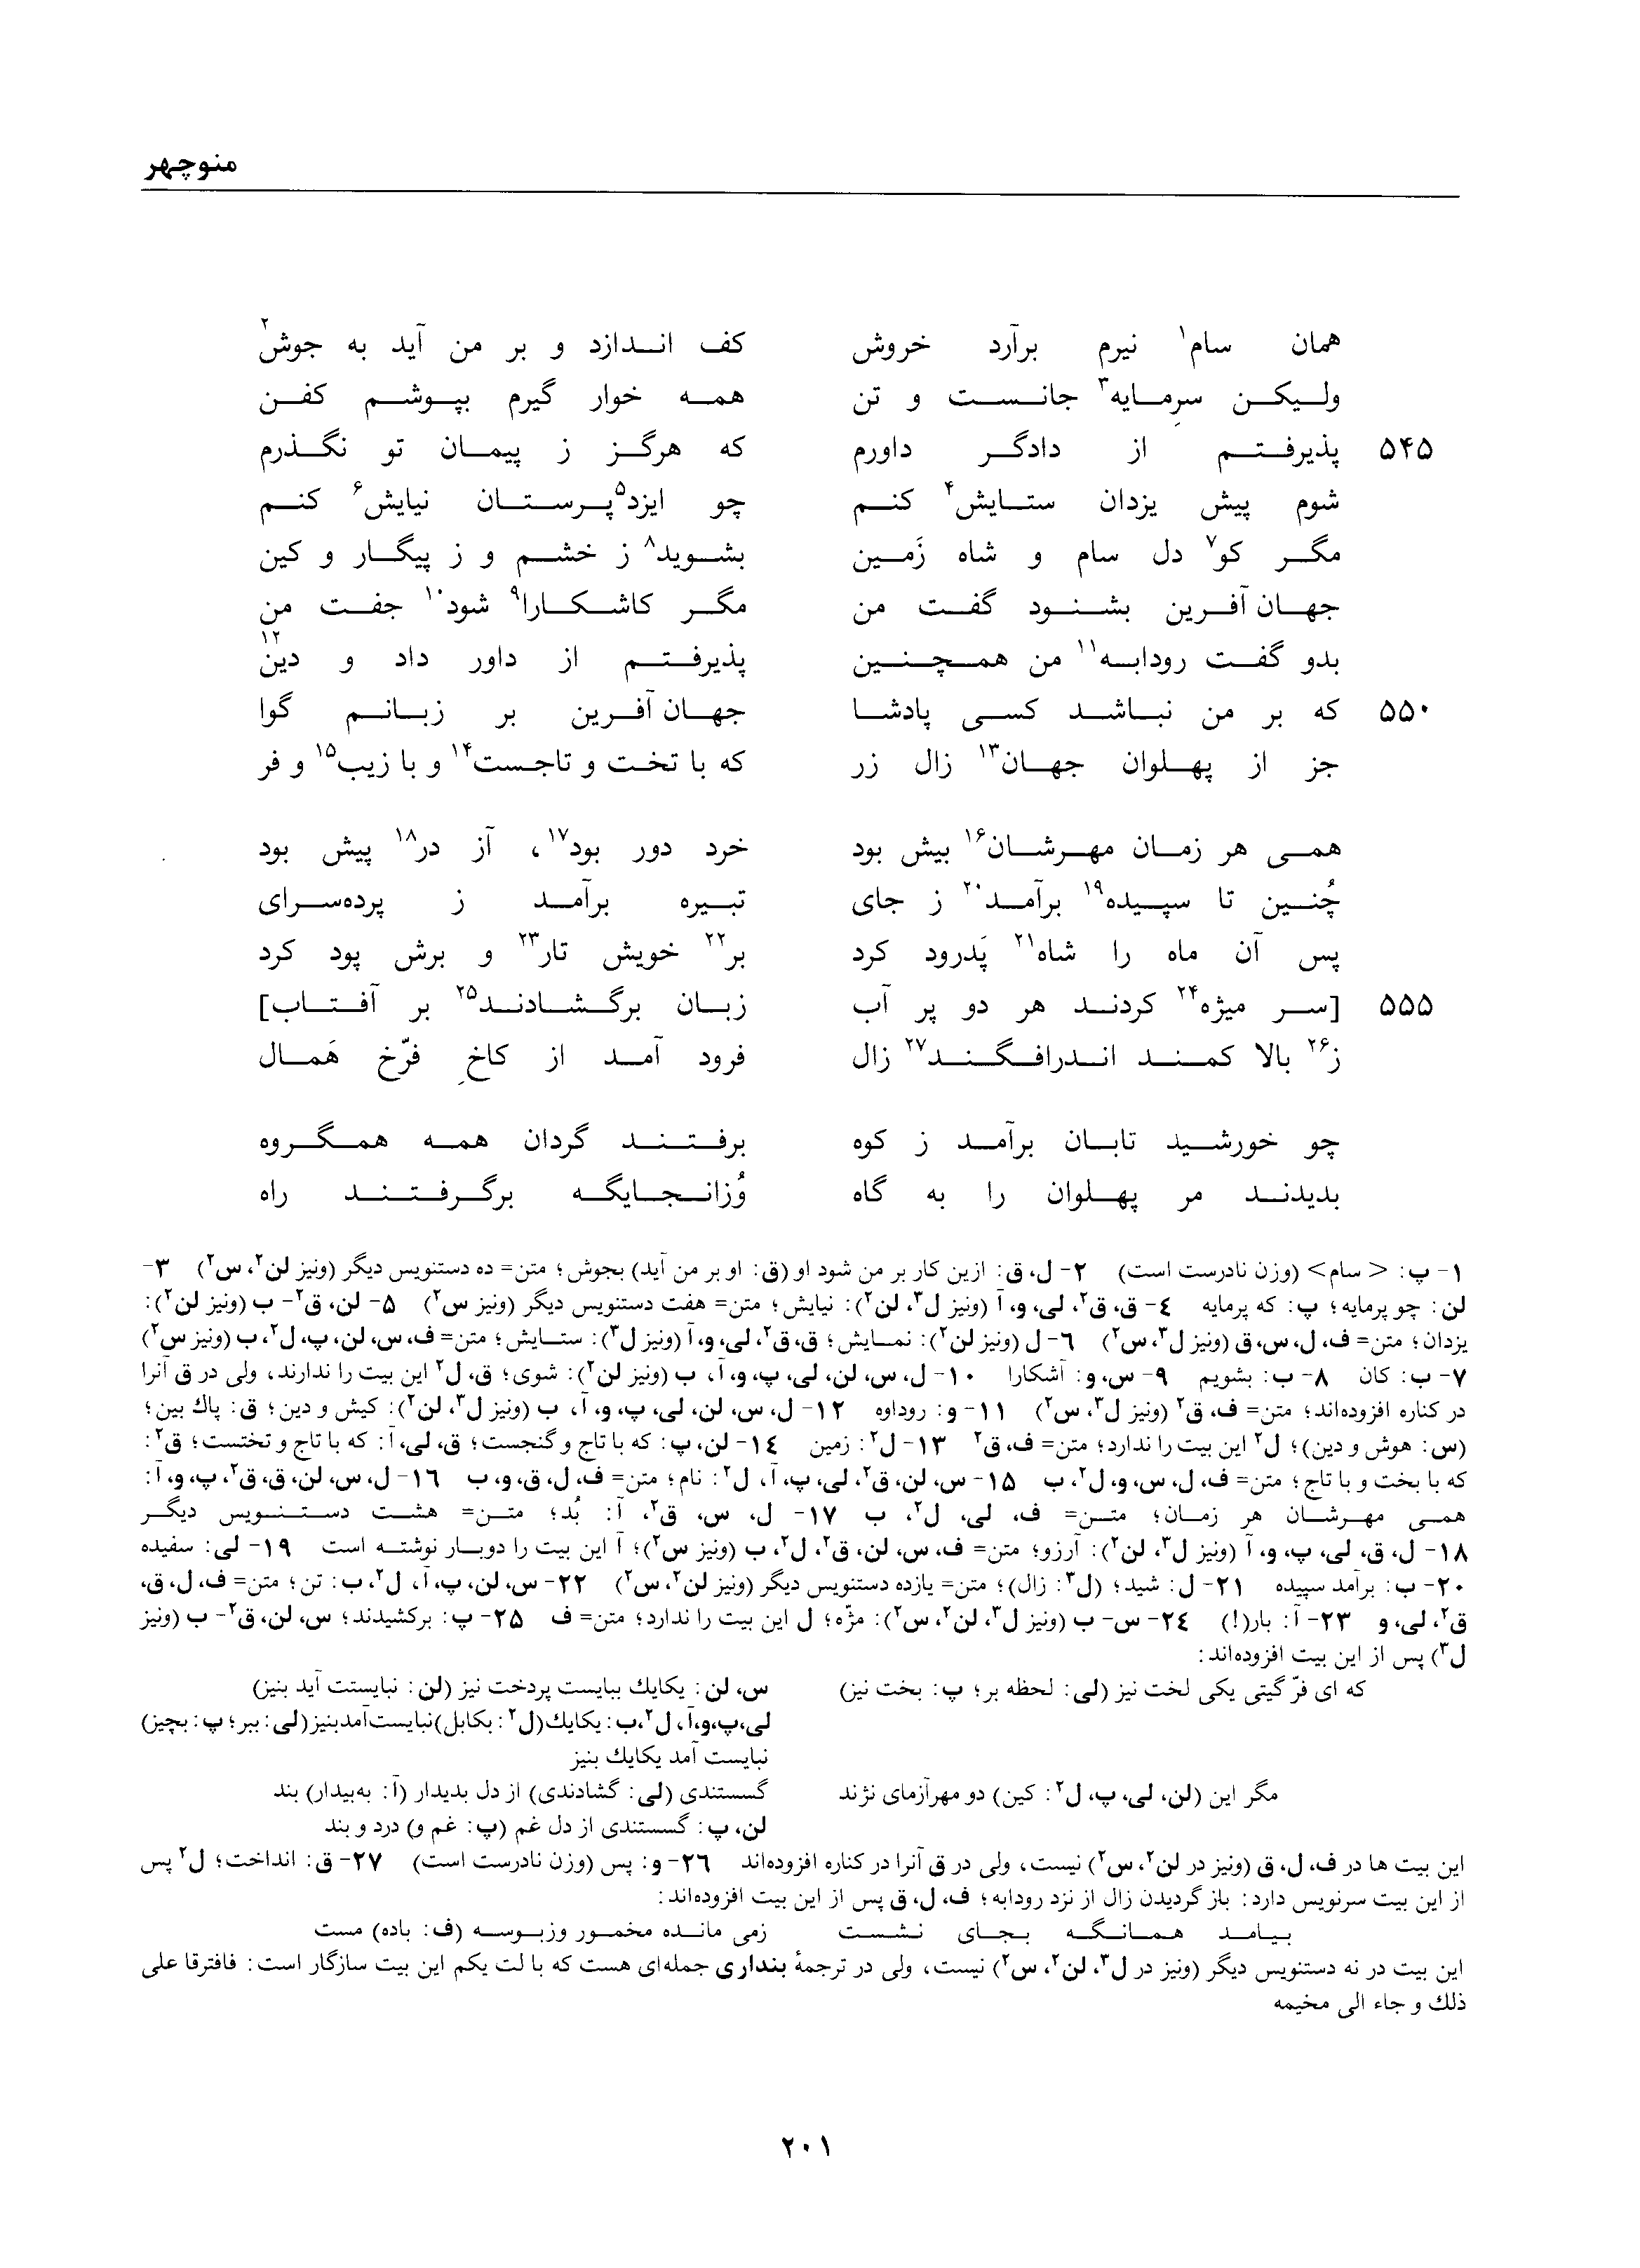 منوچهر
همان سام۱ نیرم برآرد خروش کف اندازد و بر من آید به جوش۲
ولیکن سرمایهٔ۳ جانست و تن همه خوار گیرم بپوشم کفن
۵۴۵ پذیرفتم از دادگر داورم که هرگز ز پیمان تو نگذرم
شوم پیش یزدان ستایش۴ کنم چو ایزد۵پرستان نیایش۶ کنم
مگر کو۷ دل سام و شاه زَمین بشوید۸ ز خشم و ز پیگار و کین
جهان آفرین بشنود گفت من مگر کاشکارا۹ شود۱۰ جفت من
بدو گفت رودابه۱۱ من همچنین پذیرفتم از داور داد و دین۱۲
۵۵۰ که بر من نباشد کسی پادشا جهان آفرین بر زبانم گوا
جز از پهلوان جهان۱۳ زال زر که با تخت و تاجست۱۴ و با زیب۱۵ و فر
همی هر زمان مهرشان۱۶ بیش بود خرد دور بود۱۷، آز در۱۸ پیش بود
چُنین تا سپیده۱۹ برآمد۲۰ ز جای تبیره برآمد ز پرده‌سرای
پس آن ماه را شاه۲۱ پَدرود کرد بر۲۲ خویش تار۲۳ و برش پود کرد
۵۵۵ [سر میژه۲۴ کردند هر دو پر آب زبان برگشادند۲۵ بر آفتاب]
ز۲۶ بالا کمند اندرافگند۲۷ زال فرود آمد از کاخِ فرّخ هَمال
چو خورشید تابان برآمد ز کوه برفتند گردان همه همگروه
بدیدند مر پهلوان را به گاه وُزانجایگه برگرفتند راه
۱- پ: <سام> (وزن نادرست است) ۲- ل، ق: ازین کار بر من شود او (ق: او بر من آید) بجوش؛ متن= ده دستنویس دیگر (ونیز لن۲، س۲) ۳-
لن: چو پرمایه؛ پ: که پرمایه ٤- ق، ق۲، لی، و، آ (ونیز ل۳، لن۲): نیایش؛ متن= هفت دستنویس دیگر (ونیز س۲) ۵- لن، ق۲- ب (ونیز لن۲):
یزدان؛ متن= ف، ل، س، ق (ونیز ل۳، س۲) ٦- ل (ونیز لن۲): نمایش؛ ق، ق۲، لی، و، آ (ونیز ل۳): ستایش؛ متن= ف، س، لن، پ، ل۲، ب (ونیز س۲)
۷- ب: کان ۸- ب: بشویم ۹- س، و: آشکارا ۱۰- ل، س، لن، لی، پ، و، آ، ب (ونیز لن۲): شوی؛ ق، ل۲ این بیت را ندارند، ولی در ق آنرا
در کناره افزوده‌اند؛ متن= ف، ق۲ (ونیز ل۳، س۲) ۱۱- و: روداوه ۱۲- ل، س، لن، لی، پ، و، آ، ب (ونیز ل۳، لن۲): کیش و دین؛ ق: پاك بین؛
(س: هوش و دین)؛ ل۲ این بیت را ندارد؛ متن= ف، ق۲ ۱۳- ل۲: زمین ۱٤- لن، پ: که با تاج و گنجست؛ ق، لی، آ: که با تاج و تختست؛ ق۲:
که با بخت و با تاج؛ متن= ف، ل، س، و، ل۲، ب ۱۵- س، لن، ق۲، لی، پ، آ، ل۲: نام؛ متن= ف، ل، ق، و، ب ۱٦- ل، س، لن، ق، ق۲، پ، و، آ:
همی مهرشان هر زمان؛ متن= ف، لی، ل۲، ب ۱۷- ل، س، ق۲، آ: بُد؛ متن= هشت دستنویس دیگر
۱۸- ل، ق، لی، پ، و، آ (ونیز ل۳، لن۲): آرزو؛ متن= ف، س، لن، ق۲، ل۲، ب (ونیز س۲)؛ آ این بیت را دوبار نوشته است ۱۹- لی: سفیده
۲۰- ب: برآمد سپیده ۲۱- ل: شید؛ (ل۳: زال)؛ متن= یازده دستنویس دیگر (ونیز لن۲، س۲) ۲۲- س، لن، پ، آ، ل۲، ب: تن؛ متن= ف، ل، ق،
ق۲، لی، و ۲۳- آ: بار(!) ۲٤- س- ب (ونیز ل۳، لن۲، س۲): مژّه؛ ل این بیت را ندارد؛ متن= ف ۲۵- پ: برکشیدند؛ س، لن، ق۲- ب (ونیز
ل۳) پس از این بیت افزوده‌اند:
که ای فرّ گیتی یکی لخت نیز (لی: لحظه بر؛ پ: بخت نیز) س، لن: یکایك ببایست پردخت نیز (لن: نبایستت آید بنیز)
لی،پ،و،آ، ل۲،ب: یکایك(ل۲: بکابل)نبایست‌آمدبنیز(لی: ببر؛ پ: بچیز)
نبایست آمد یکایك بنیز
مگر این (لن، لی، پ، ل۲: کین) دو مهرآزمای نژند گسستندی (لی: گشادندی) از دل بدیدار (آ: به‌بیدار) بند
لن، پ: گسستندی از دل غم (پ: غم و) درد و بند
این بیت ها در ف، ل، ق (ونیز در لن۲، س۲) نیست، ولی در ق آنرا در کناره افزوده‌اند ۲٦- و: پس (وزن نادرست است) ۲۷- ق: انداخت؛ ل۲ پس
از این بیت سرنویس دارد: باز گردیدن زال از نزد رودابه؛ ف، ل، ق پس از این بیت افزوده‌اند:
بیامد همانگه بجای نشست زمی مانده مخمور وزبوسه (ف: باده) مست
این بیت در نه دستنویس دیگر (ونیز در ل۳، لن۲، س۲) نیست، ولی در ترجمهٔ بنداری جمله‌ای هست که با لت یکم این بیت سازگار است: فافترقا علی
ذلك و جاء الی مخیمه
۲۰۱